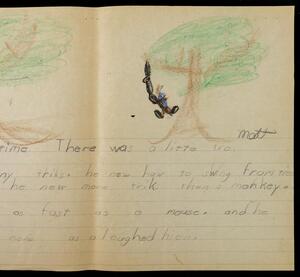 Matt
time. There was a little
ny triks. he new how to swing from tree
he new more trik than a monkey.
as fast as a mouse. and he
as a laughed hiena.